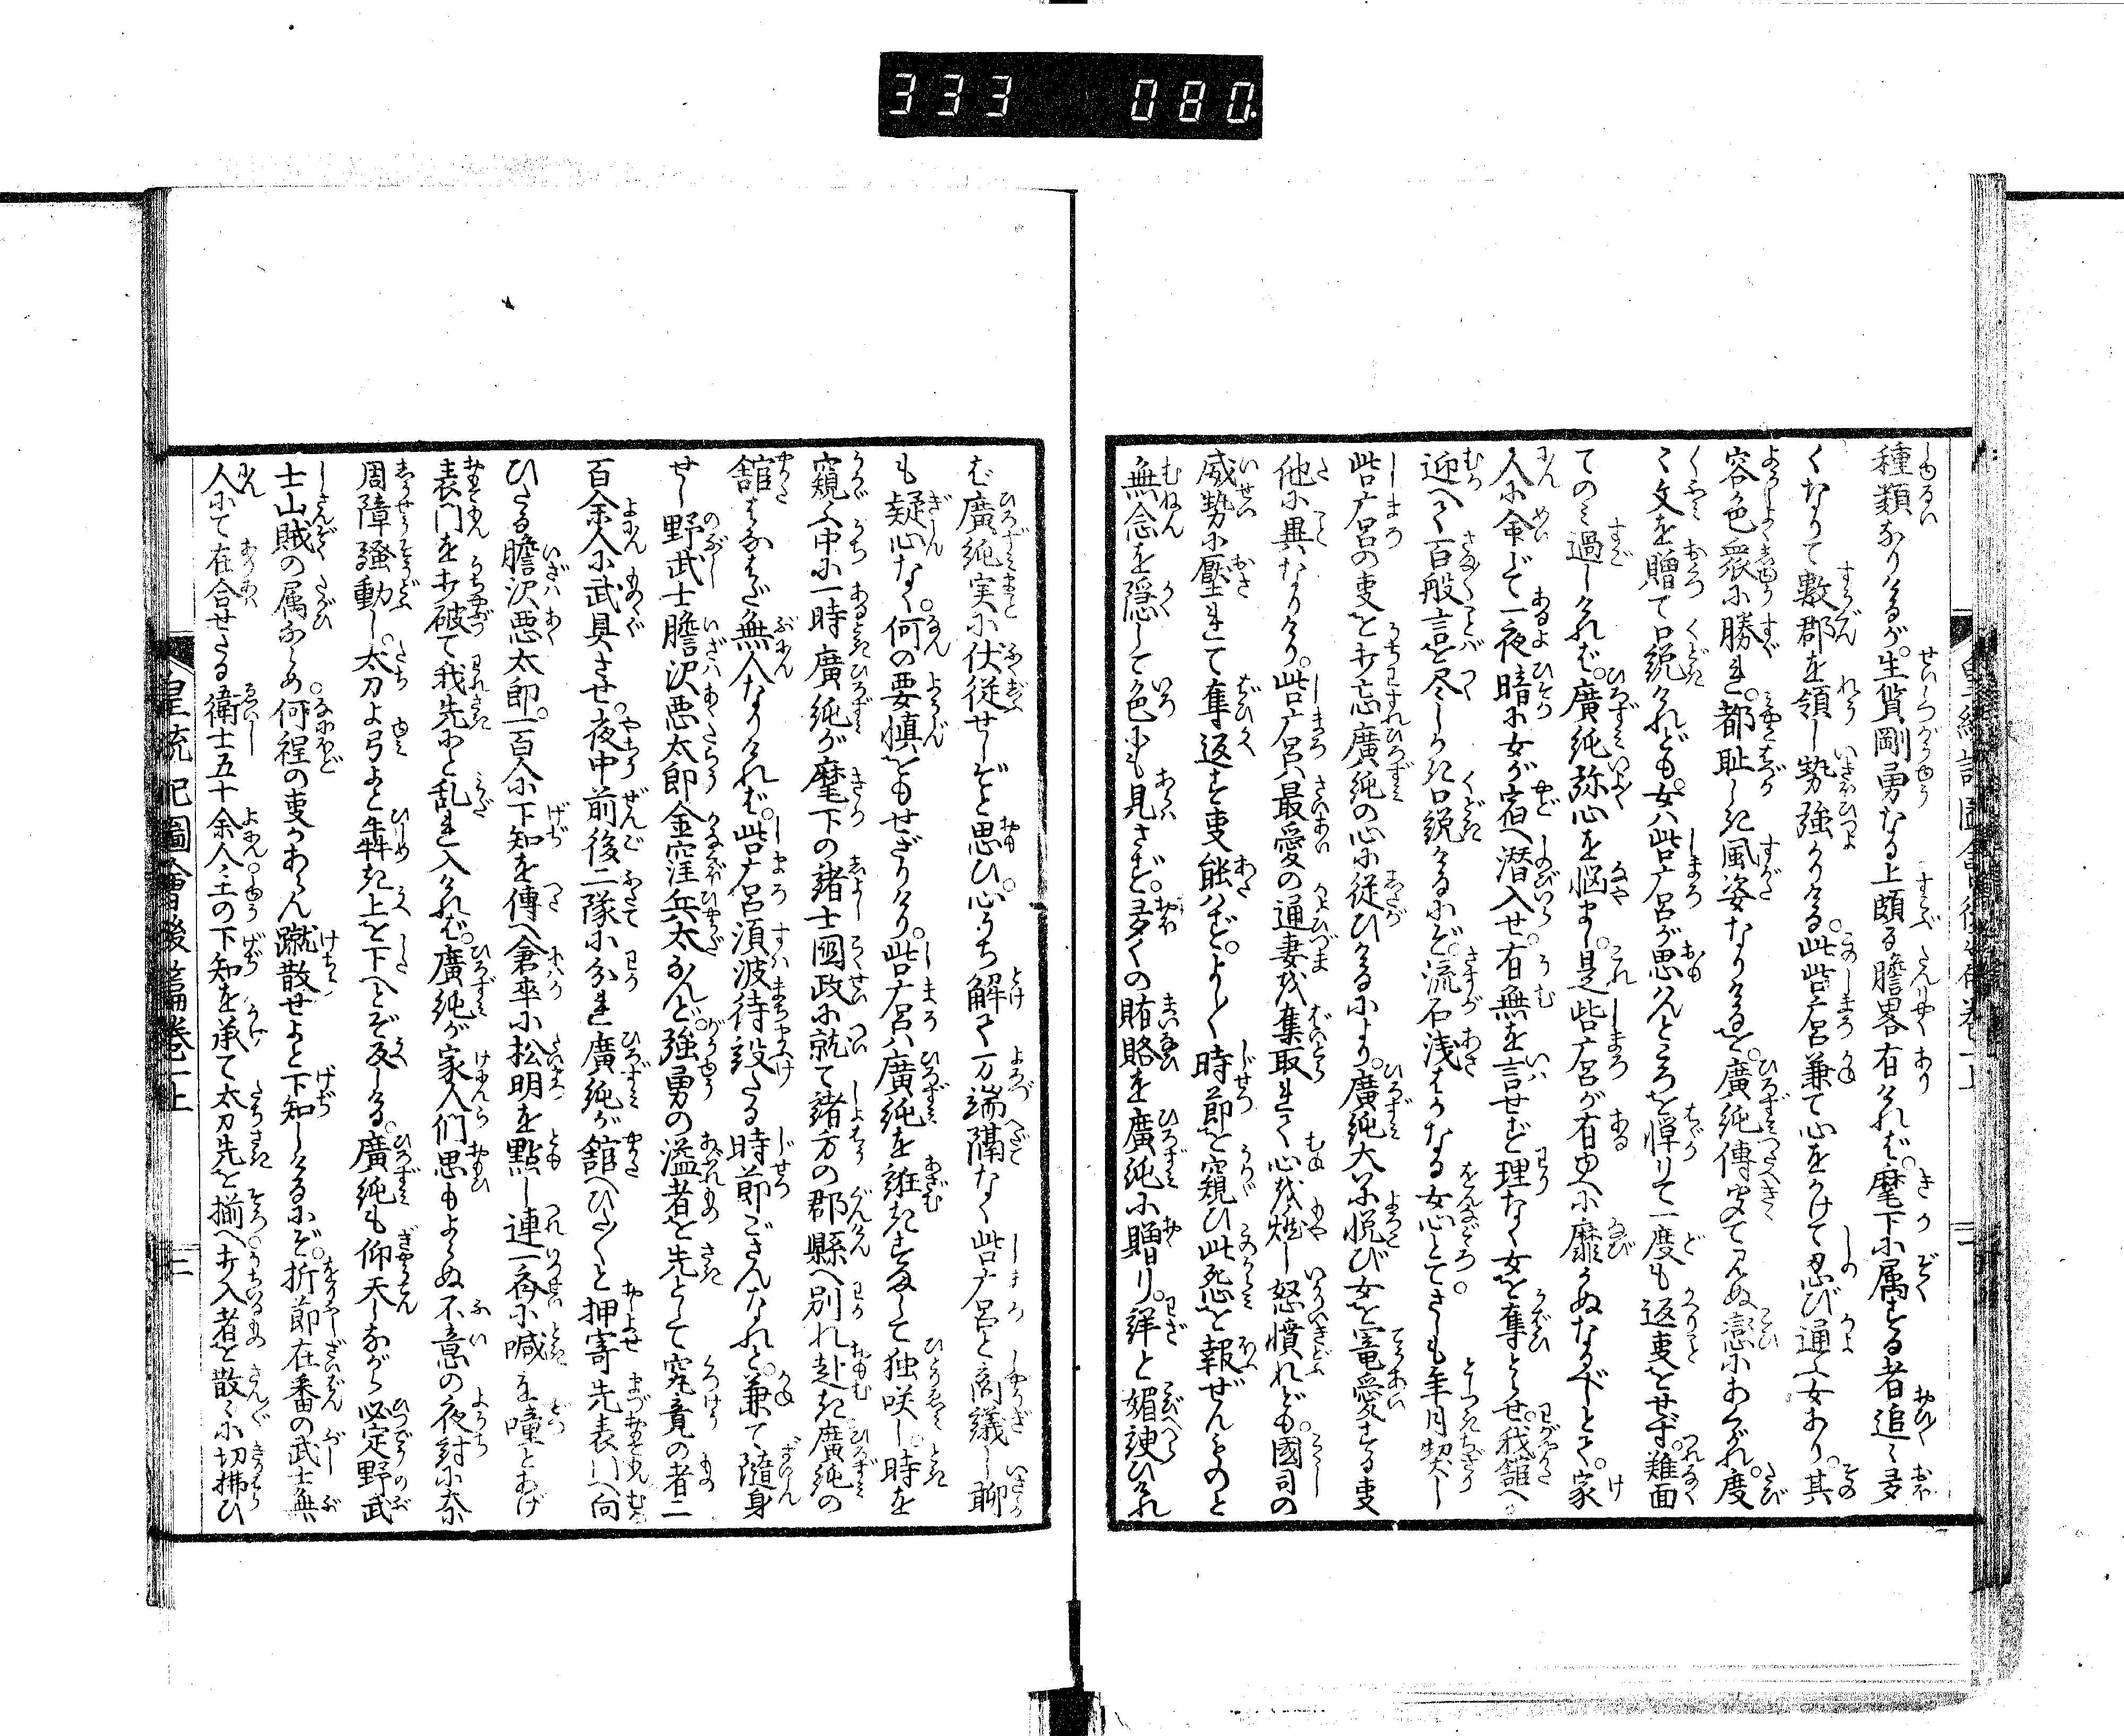 333 080
種類なりけるが。生質剛勇なる上頗る膽畧有ければ。麾下に属する者追〻多
くなりて數郡を領し勢強かりける。此呰广呂兼て心をかけて忍び通ふ女あり。其
容色衆に勝れ。都耻しき風姿なりけるを。廣純傳聞て見ぬ戀にあくがれ。度
〻文を贈て口説けれども。女は呰广呂が思はんところを憚りて一度も返事をせず。難面
てのミ過しければ。廣純弥心を悩まし。是呰广呂が有ゆへに靡かぬなるべしとて。家
人に命じて一夜暗に女が宿へ潜入せ。有無を言せず理なく女を奪とらせ。我舘へ
迎へて百般言を尽しかき口説けるにぞ。流石浅はかなる女心とてさしも年月契りし
呰广呂の事を打忘廣純の心に従ひけるにより。廣純大に悦び女を寵愛する事
他に異なりけり。呰广呂は最愛の通妻を奪取れて心を燃し怒憤れども。國司の
威勢に壓れて奪返す事能はず。よし〳〵時節を窺ひ此怨を報ぜんものと
無念を隠して色にも見さず。多くの賄賂を廣純に贈り。詳と媚諛ひけれ
ば廣純実に伏従せしぞと思ひ。心うち解て万端隔なく呰广呂と商議し聊
も疑心なく。何の要慎をもせざりけり。呰广呂は廣純を誑きすまして独咲し。時を
窺ふ中に一時廣純が麾下の諸士國政に就て諸方の郡縣へ別れ赴き廣純の
舘はなはだ無人なりければ。呰广呂須波待設たる時節ござんなれと。兼て隨身
せし野武士膽沢悪太郎金窪兵太なんど。強勇の溢者を先として究竟の者二
百余人に武具させ。夜中前後二隊に分れ廣純が舘へひた〳〵と押寄先表門へ向
ひたる膽沢悪太郎。一百人に下知を傳へ倉卒に松明を點し連一齊に喊を噇とあげ
表門を打破て我先にと乱れ入ければ。廣純が家人們思もよらぬ不意の夜討に奈
周障騒動し。太刀よ弓よと犇き上を下へとぞ返しける。廣純も仰天しながら必定野武
士山賊の属ならめ。何程の事かあらん蹴散せよと下知しけるにぞ。折節在番の武士無
人にて在合せたる衛士五十余人。主の下知を承て太刀先を揃へ打入者を散〻に切拂ひ
皇統記圖會後篇卷一上
二